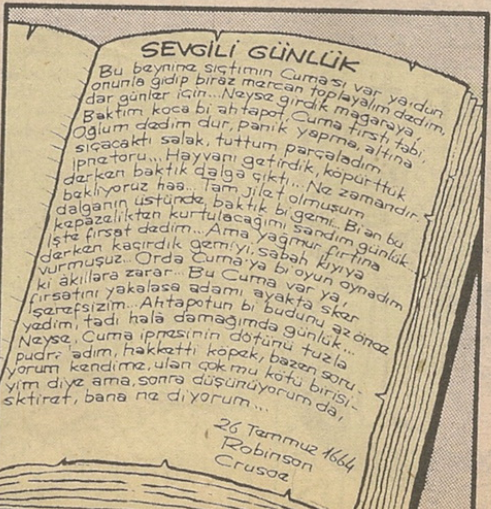 SEVGİLİ GÜNLÜK
Bu beynine sıçtımın Cuma'sı var ya, dün
onunla gidip biraz mercan toplayalım dedim,
dar günler için... Neyse girdik mağaraya.
Baktım koca bi ahtapot, Cuma tırstı tabi,
Oğlum dedim dur, panik yapma, altına
sıçacaktı salak, tuttum parçaladım
ipnetoru... Hayvanı getirdik, köpürttük
derken baktık dalga çıktı... Ne zamandır
bekliyoruz haa... Tam jilet olmuşum
dalganın üstünde, baktık bi gemi.. Bi an bu
kepazelikten kurtulacağımı sandım günlük..
İşte fırsat dedim... Ama yağmur fırtına
derken kaçırdık gemiyi, sabah kıyıya
vurmuşuz... Orda Cuma'ya bi oyun oynadım
ki akıllara zarar... Bu Cuma var ya,
fırsatını yakalasa adamı ayakta sker
şerefsizim... Ahtapotun bi budunu az önce
yedim, tadı hala damağımda günlük...
Neyse, Cuma ipnesinin dötünü tuzla
pudraladım, hakketti köpek, bazen soru-
yorum kendime, ulan çok mu kötü birisi-
yim diye ama, sonra düşünüyorum da,
sktiret, bana ne diyorum...
26 Temmuz 1664
Robinson
Crusoe